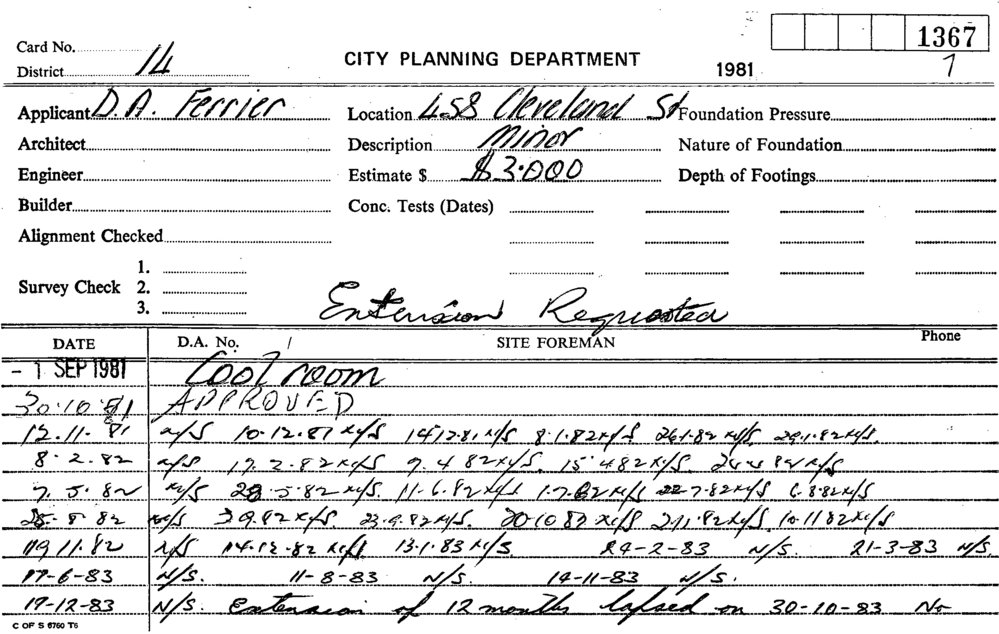 1367
Card No.
District 14
CITY PLANNING DEPARTMENT
1981
7
Applicant D.A. Ferrier
Location 458 Cleveland St
Foundation Pressure
Architect
Description Minor
Nature of Foundation
Engineer
Estimate $ $3.000
Depth of Footings
Builder
Conc. Tests (Dates)
Alignment Checked
Survey Check
1.
2.
3.
Extension Requested
DATE D.A. No. SITE FOREMAN Phone
- 1 SEP 1981 Cool room
30.10.81 APPROVED
12.11.81 N/S 10.12.81 N/S 14.12.81 N/S 8.1.82 N/S 26.1.82 N/S 29.1.82 N/S.
8.2.82 N/S 17.2.82 N/S 7.4.82 N/S. 15.4.82 N/S. N/S
7.5.82 N/S 28.5.82 N/S. 11.6.82 N/S 1.7.82 N/S 22.7.82 N/S 6.8.82 N/S
25.8.82 N/S 3.9.82 N/S 23.9.82 N/S. 20.10.82 N/S 2.11.82 N/S 10.11.82 N/S
19.11.82 N/S 14.12.82 N/S 13.1.83 N/S 24-2-83 N/S. 21-3-83 N/S.
17-6-83 N/S. 11-8-83 N/S. 14-11-83 N/S.
19-12-83 N/S. Extension of 12 months lapsed on 30-10-83 No
C OF S 6760 T6